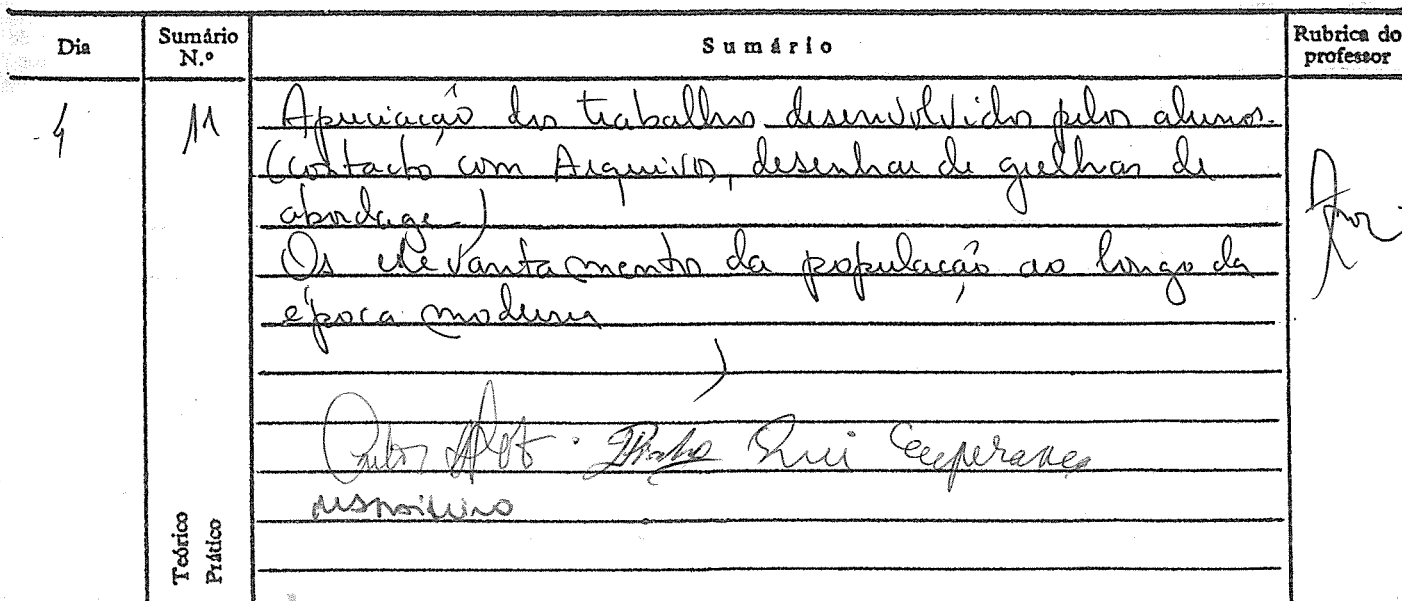 Dia
Sumário N.º
Sumário
Rubrica do professor
4
11
Apreciação dos trabalhos desenvolvidos pelos alunos.
(contacto com Arquivos, desenhar de grelhas de
abordage)
Os levantamento da população ao longo da
época moderna
Rui Esperança
Teórico
Prático